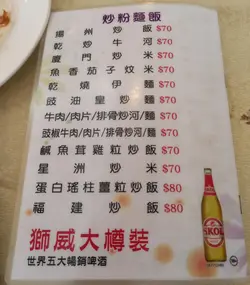 炒粉麵飯
揚州炒飯 $70
乾炒牛河 $70
廈門炒米 $70
魚香茄子炆米 $70
乾燒伊麵 $70
豉油皇炒麵 $70
牛肉/肉片/排骨炒河/麵 $70
豉椒牛肉/肉片/排骨炒河/麵 $70
鹹魚茸雞粒炒飯 $70
星洲炒米 $70
蛋白瑤柱薑粒炒飯 $80
福建炒飯 $80
獅威大樽裝
世界五大暢銷啤酒
SKOL